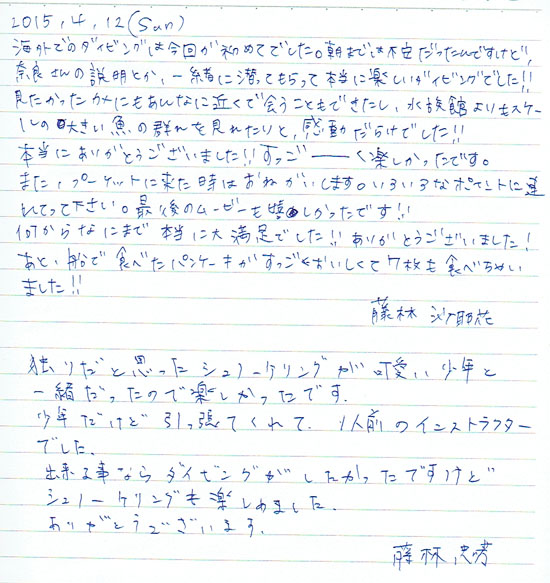 2015, 4, 12 (Sun)
海外でのダイビングは今回が初めてでした。朝までは不安だったんですけど、
奈良さんの説明とか、一緒に潜ってもらって本当に楽しいダイビングでした!!
見たかったカメにもあんなに近くで会うこともできたし、水族館よりもスケー
ルの大きい魚の群れを見れたりと、感動だらけでした!!
本当にありがとうございました!! すっごーーく楽しかったです。
また、プーケットに来た時はおねがいします。いろいろなポイントに連
れてって下さい。最後のムービーも嬉しかったです!!
何からなにまで本当に大満足でした!! ありがとうございました!
あと、船で食べたパンケーキがすっごくおいしくて7枚も食べちゃい
ました!!
藤林
独りだと思ったシュノーケリングが可愛い少年と
一緒だったので楽しかったです.
少年だけど引っ張てくれて. 1人前のインストラクター
でした.
出来る事ならダイビングがしたかったですけど
シュノーケリングも楽しめました.
ありがとうございます.
藤林 忠孝